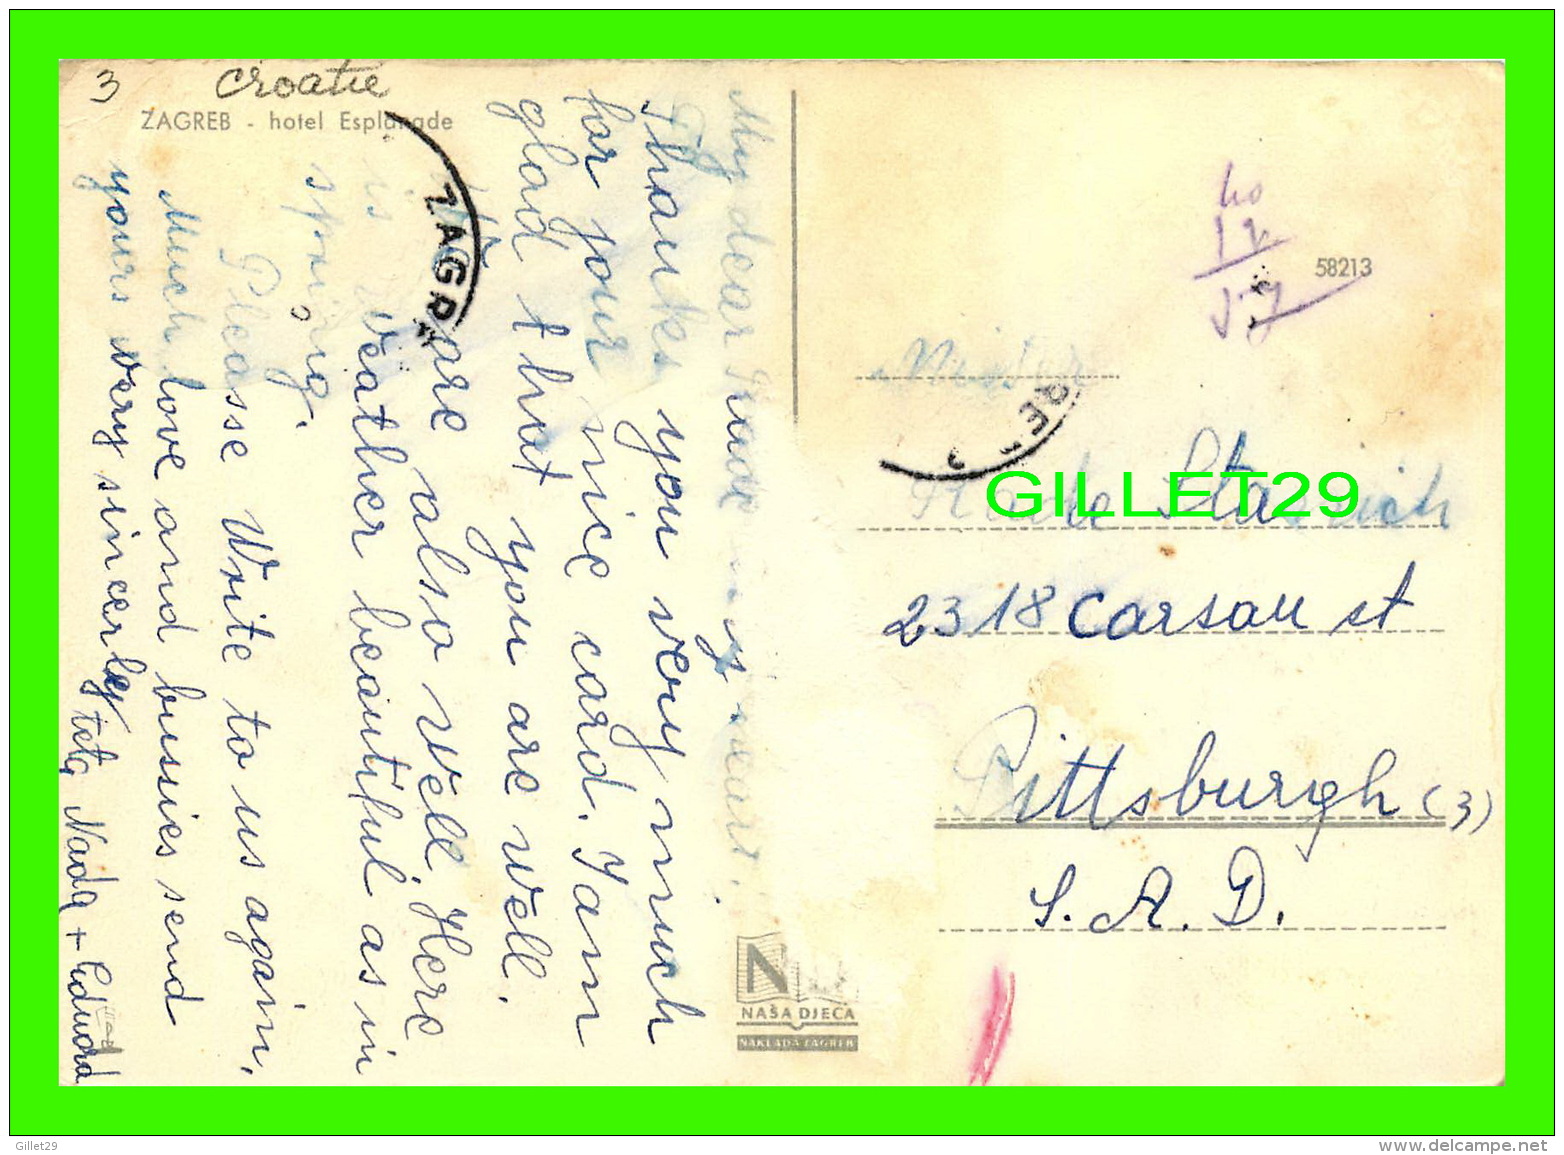 3
Croatie
ZAGREB - hotel Esplanade
My dear
Thanks you very much
for your nice card. I am
glad that you are well.
We are also well. Here
is weather beautiful as in
spoing.
Pleasse Write to us again,
Much love and bussies send
yours very sincerley
teta Nada + Edvard
ZAGR
REB
58213
Mister
Stanich
2318 Carsau st
Pittsburgh (3)
S. A. D.
GILLET29
N
NAŠA DJECA
NAKLADA ZAGREB
Gillet29
www.delcampe.net